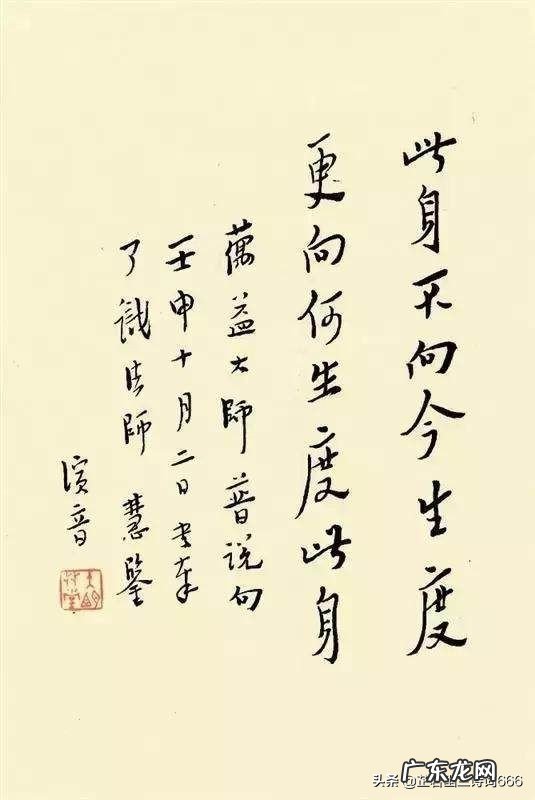 此身不向今生度
更向何生度此身
蕅益大師普説句
壬申十月二日書奉
了識法師 慧鑒
演音
广东龙网
头条 诗词666